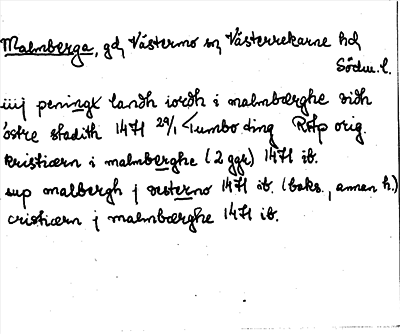 Malmberga, gd, Västermo sn, Västerrekarne hd
Södm. l.
iiij peningx landh iordh i malmbærghe widh
østre stadith 1471 29/1 Tumbo ding RAp orig.
kristiærn i malmberghe (2 ggr) 1471 ib.
sup malbergh j vesterno 1471 ib. (baks., annan h.)
cristiærn j malmbærghe 1471 ib.